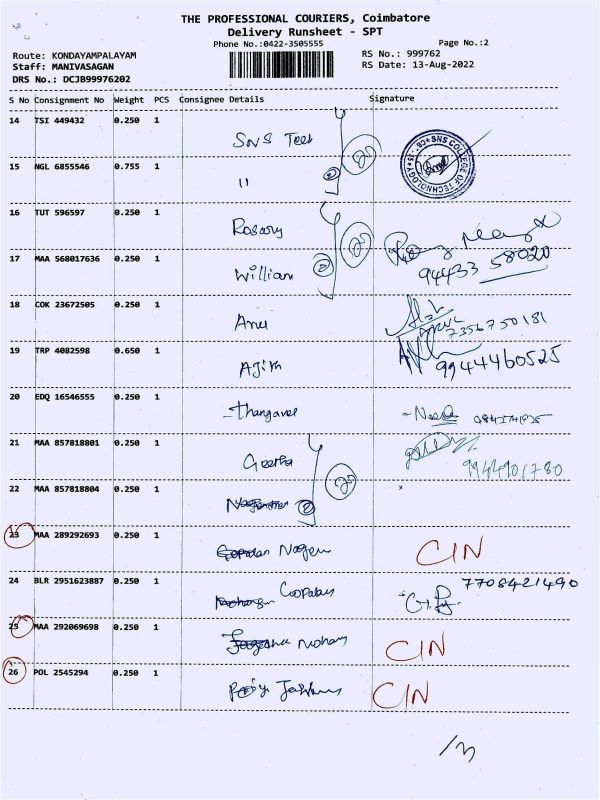 THE PROFESSIONAL COURIERS, Coimbatore
Delivery Runsheet - SPT
Phone No.:0422-3505555
Page No.:2
Route: KONDAYAMPALAYAM
RS No.: 999762
Staff: MANIVASAGAN
RS Date: 13-Aug-2022
DRS No.: DCJB99976202
S No Consignment No Weight PCS Consignee Details Signature
14 TSI 449432 0.250 1 SNS Tech
SNS COLLEGE OF TECHNOLOGY
15 NGL 6855546 0.755 1 "
16 TUT 596597 0.250 1 Rosary
17 MAA 568017636 0.250 1 William 94433 58020
18 COK 23672505 0.250 1 Anu 7356750181
19 TRP 4082598 0.650 1 Ajith 9944460525
20 EDQ 16546555 0.250 1 Thangavel
21 MAA 857818801 0.250 1 Geetha 9944901780
22 MAA 857818804 0.250 1
23 MAA 289292693 0.250 1 CIN
24 BLR 2951623887 0.250 1 7708421490
25 MAA 292069698 0.250 1 CIN
26 POL 2545294 0.250 1 CIN